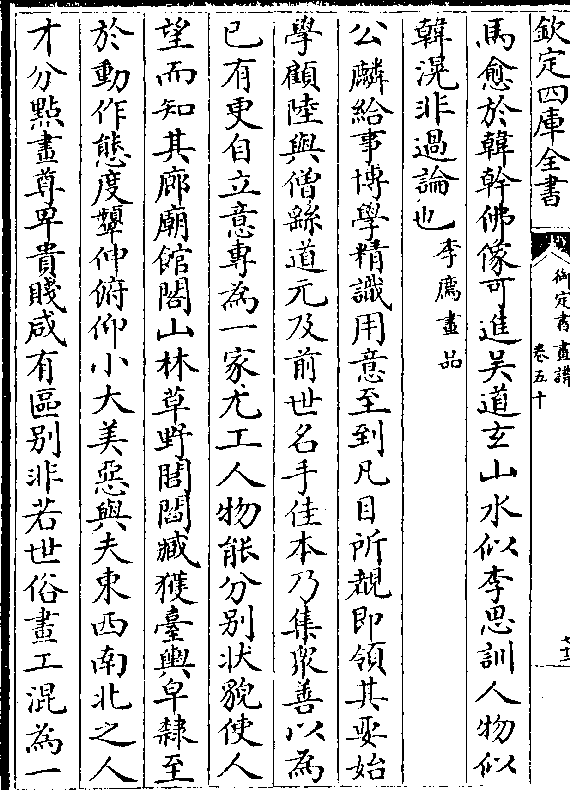 欽定四庫全書
御定書畫譜
卷五十
馬愈於韓幹佛像可進吴道玄山水似李思訓人物似
韓滉非過論也李廌畫品
公麟給事博學精識用意至到凡目所覩即領其要始
學顧陸與僧繇道元及前世名手佳本乃集衆善以為
已有更自立意專為一家尤工人物能分别状貌使人
望而知其廊廟館閣山林草野閭閻臧獲臺輿皁隸至
於動作態度顰伸俯仰小大美惡與夫東西南北之人
才分點畫尊卑貴賤咸有區别非若世俗畫工混為一